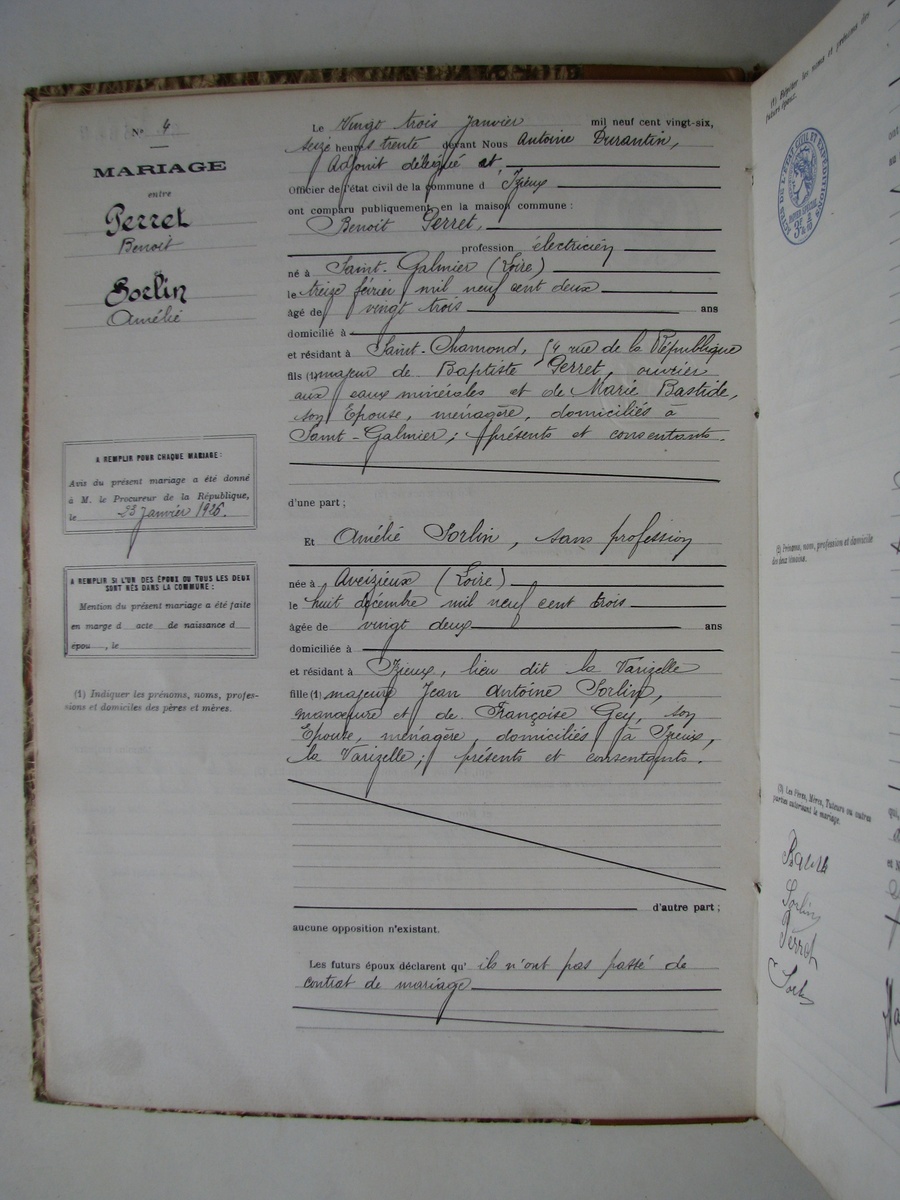 N° 4
MARIAGE
entre
Perret
Benoit
Sorlin
Amélie
A REMPLIR POUR CHAQUE MARIAGE :
Avis du présent mariage a été donné
à M. le Procureur de la République,
le 23 Janvier 1926.
A REMPLIR SI L'UN DES ÉPOUX OU TOUS LES DEUX
SONT NÉS DANS LA COMMUNE :
Mention du présent mariage a été faite
en marge d acte de naissance d
épou , le
(1) Indiquer les prénoms, noms, profes-
sions et domiciles des pères et mères.
Le Vingt trois Janvier mil neuf cent vingt-six,
seize heures trente devant Nous Antoine Durantin,
Adjoint délégué et,
Officier de l'état civil de la commune d Izieux
ont comparu publiquement en la maison commune :
Benoit Perret,
profession électricien
né à Saint-Galmier (Loire)
le treize février mil neuf cent deux
âgé de vingt trois ans
domicilié à
et résidant à Saint-Chamond, 54 rue de la République
fils (1) majeur de Baptiste Perret, ouvrier
aux eaux minérales et de Marie Bastide,
son Epouse, ménagère, domiciliés à
Saint-Galmier ; présents et consentants.
d'une part ;
Et Amélie Sorlin, sans profession
née à Aveizieux (Loire)
le huit décembre mil neuf cent trois
âgée de vingt deux ans
domiciliée à
et résidant à Izieux, lieu dit la Varizelle
fille (1) majeure Jean Antoine Sorlin,
manœuvre et de Françoise Gey, son
Epouse, ménagère, domiciliés à Izieux,
la Varizelle ; présents et consentants.
d'autre part ;
aucune opposition n'existant.
Les futurs époux déclarent qu' ils n'ont pas passé de
contrat de mariage
(2) Prénoms, noms, profession et domicile
des deux témoins.
(3) Les Pères, Mères, Tuteurs ou autres
parties autorisant le mariage.
Sorlin
Perret